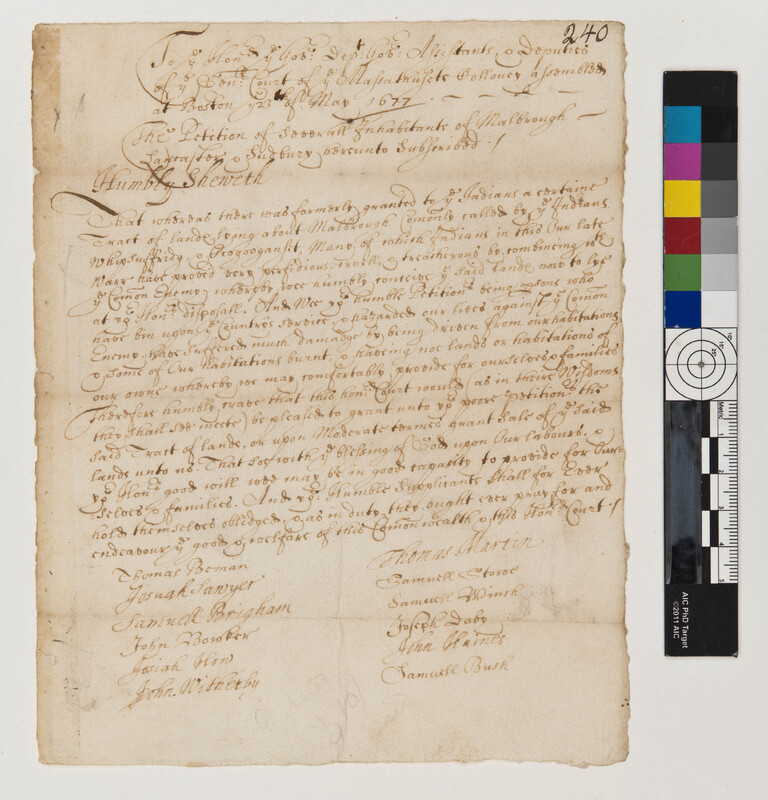 240
To ye Hond ye Govr: Dept: Govr: Assistants, & Deputies
of ye Genll Court of ye Massatkusets Colloney assembled
at Boston ye 23th of May 1677
The Petition of Severall Inhabitants of Malbrough
Lancaster & Sudbury hereunto Subscribed
Humbly Sheweth
That whereas there was formerly granted to ye Indians a certaine
Tract of lande Lying about Malbrough Comonly called by ye Indians
Whipsuffridg & Ocogooganset, Many of which Indians in this Our late
Warr have proved very perfidious, cruell, & treacherous by combineing wth
ye Comon Enemy whereby wee humbly conceive ye said lande now to lye
at yor Honrs disposall. And Wee yor humble Petitionrs being persons who
have bin upon ye Cuntres service & hazarded our lives against ye Comon
Enemy, have suffered much damadge by being driven from our habitations
& some of Our habitations burnt, & haveing noe lands or habitations of
our owne whereby we may comfortably provide for ourselves & families
Therefore humbly crave that this hond Court would (as in theire Wisdoms
they shall see meete) be pleased to grant unto yor poore Petitionrs the
said Tract of lande, or upon Moderate termes grant sale of ye said
lands unto us. That soe with ye blessing of God upon Our labours, &
yor Honrs good will wee may be in good capasity to provide for Our-
selves & families. And yor Humble Supplicants shall for Ever
hold themselves obledged, & as in duty they ought ever pray for and
endeavour ye good & welfare of this Comon wealth & this Hond Court
Thomas Beman
Josuah Sawyer
Samuell Brigham
John Bowker
Josiah How
John Witherby
Thomas Martin
Samuell Stowe
Samuell Winch
Joseph Daby
John Haines
Samuell Bush
Metric
1
2
3
4
5
AIC PhD Target
©2011 AIC